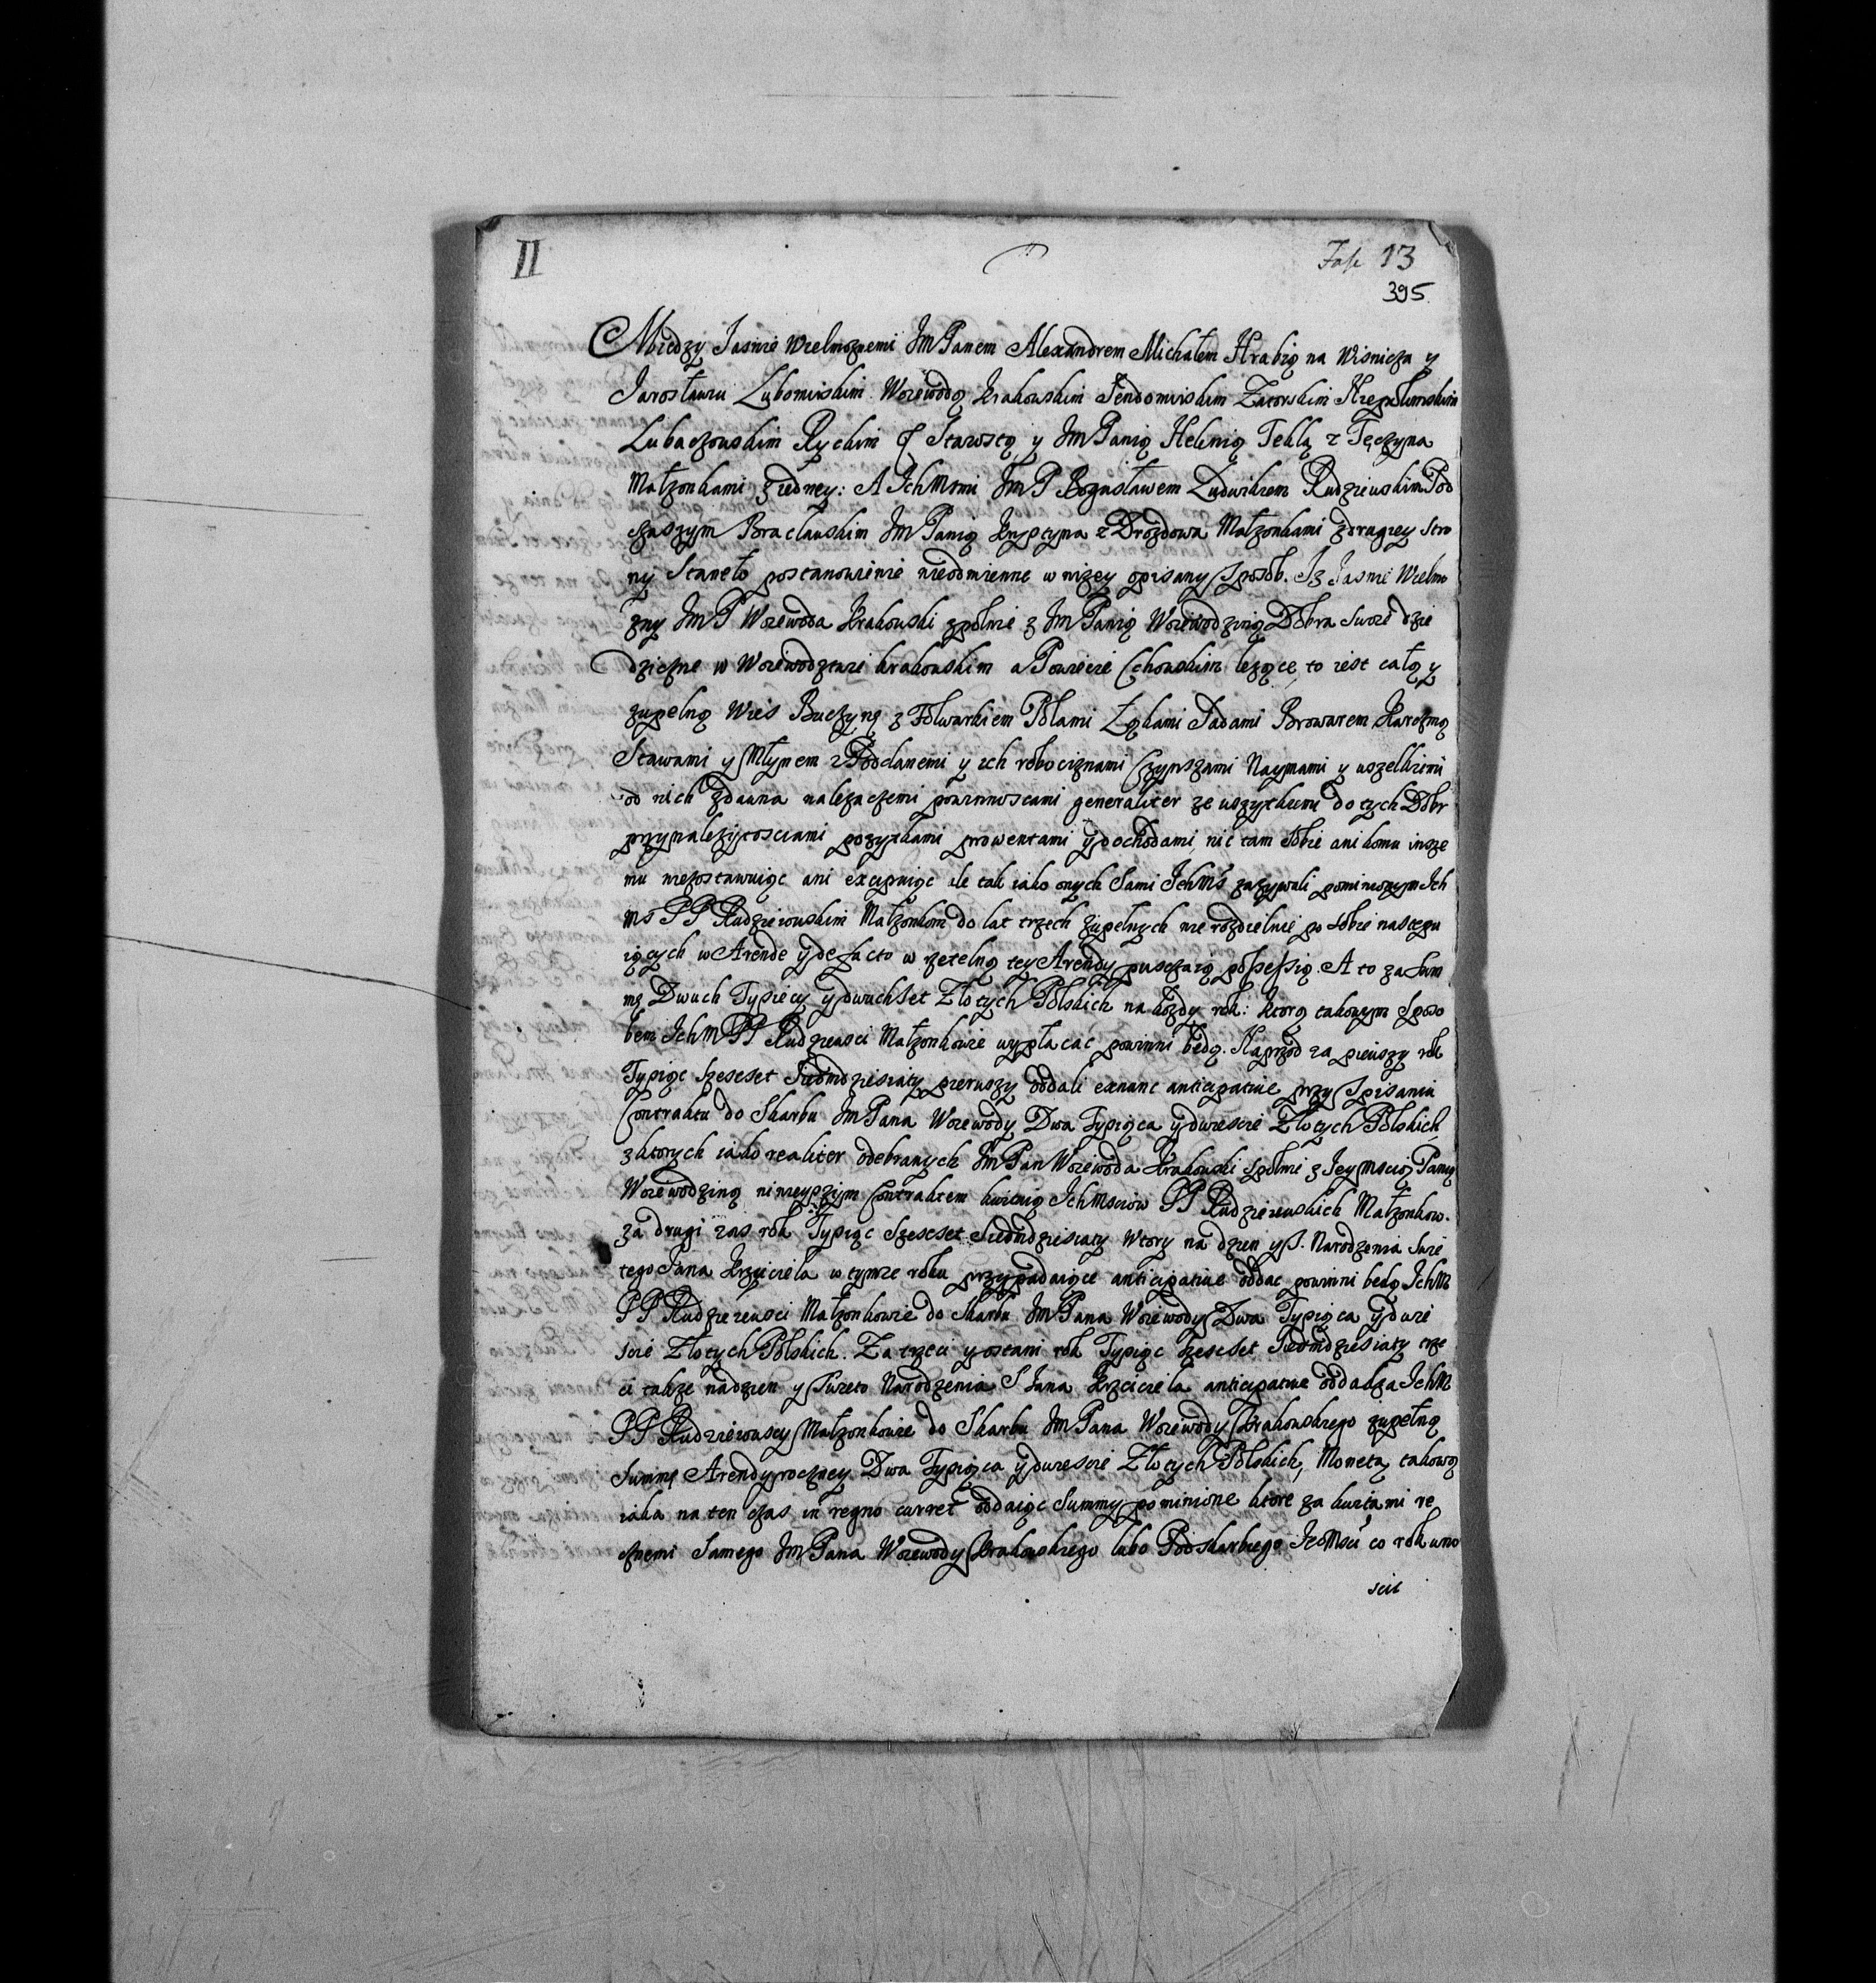 II
Fasc 13
395
Między Jasnie Wielmoznemi Jm Panem Alexandrem Michałem Hrabią na Wisniczu y
Jarosławiu Lubomirskim Woiewodą Krakowskim Sendomirskim Zatorskim Niepołomskim
Lubaczowskim Ryckim & Starostą y Jm Panią Heleną Teklą z Tęczyna
Małzonkami z iedney: A Ich Msmi Jm P Bogusławem Ludwikem Rudzieuskim Pod
czaszym Bracłauskim Jm Panią Krystyna z Drozdowa Małzonkami z drugiey stro
ny Staneło postanowienie nieodmienne w nizey opisany sposob. Iz Jasnie Wielmo
zny Jm P Woiewoda Krakowski spolnie z Jm Panią Woiewodziną Dobra Swoie dzie
dziczne w Woiewodztwie krakowskim a Powiecie lezące, to iest całą y
zupelną Wies Buczynę z Folwarkiem Polami Łąkami Sadami Browarem Karczmą
Stawami y Młynem z Poddanemi y ich robociznami Czynszami Naymami y wszelkiemi
od nich zdawna nalezaczemi powinnoscami generaliter ze wszytkiemi do tych Dobr
przynalezytosciami pozytkami prowentami y dochodami, nic tam sobie ani komu insze
mu niezostawuiąc ani excipuiąc ale tak iako onych Sami Ichms zazywali pomienionym Ich
Ms PP Rudzieiouskim Małzonkom do lat trzech zupełnych nie rozdzielnie po sobie nastepu
iących w Arende y de facto w rzetelną tey Arendy puszczaią possessią. A to za Sum
mę Dwuch Tysięcy y dwuchset Złotych Polskich na kozdy rok: Ktorą takowym sposo
bem Ich M PP Rudzieusci Małzonkowie wypłacać powinni bedą. Naprzod za pierszy rok
Tysiąc Szescset Siedmdziesiaty pierwszy oddali exnunc anticipative przy Spisaniu
Contraktu do Skarbu Jm Pana Woiewody Dwa Tysiąca y dwiescie Złotych Polskich,
z ktorych iako realiter odebranych Jm Pan Woiewoda Krakowski spolnie z Jeymscią Panią
Woiewodziną ninieyszym Contraktem kwituią Ich Msciow PP Rudzieieuskich Małzonkow.
za drugi zas rok Tysiąc Szescset Siedmdziesiaty Wtory na dzien y S. Narodzenia Swie
tego Jana Krzciciela w tymze roku przypadaiące anticipative oddac powinni bedą Ich M
PP Rudzieieusci Małzonkowie do Skarbu Jm Pana Woiewody Dwa Tysiąca y dwie
scie Złotych Polskich. Za trzeci y ostatni rok Tysiąc Szescset Siedmdziesiaty trze
ci takze na dzien y Swieto Narodzenia S Jana Krzciciela anticipative oddadza Ich M
PP Rudzieiouscy Małzonkowie do Skarbu Jm Pana Woiewody Krakowskiego zupełną
Summę Arendy roczney Dwa Tysiąca y dwiescie Złotych Polskich, Monetą takową
iaka na ten czas in regno curret oddaiąc Summy pominione ktore za kwitami re
cznemi Samego Jm Pana Woiewody Krakowskiego lubo Podskarbiego Je Msci co rok uno